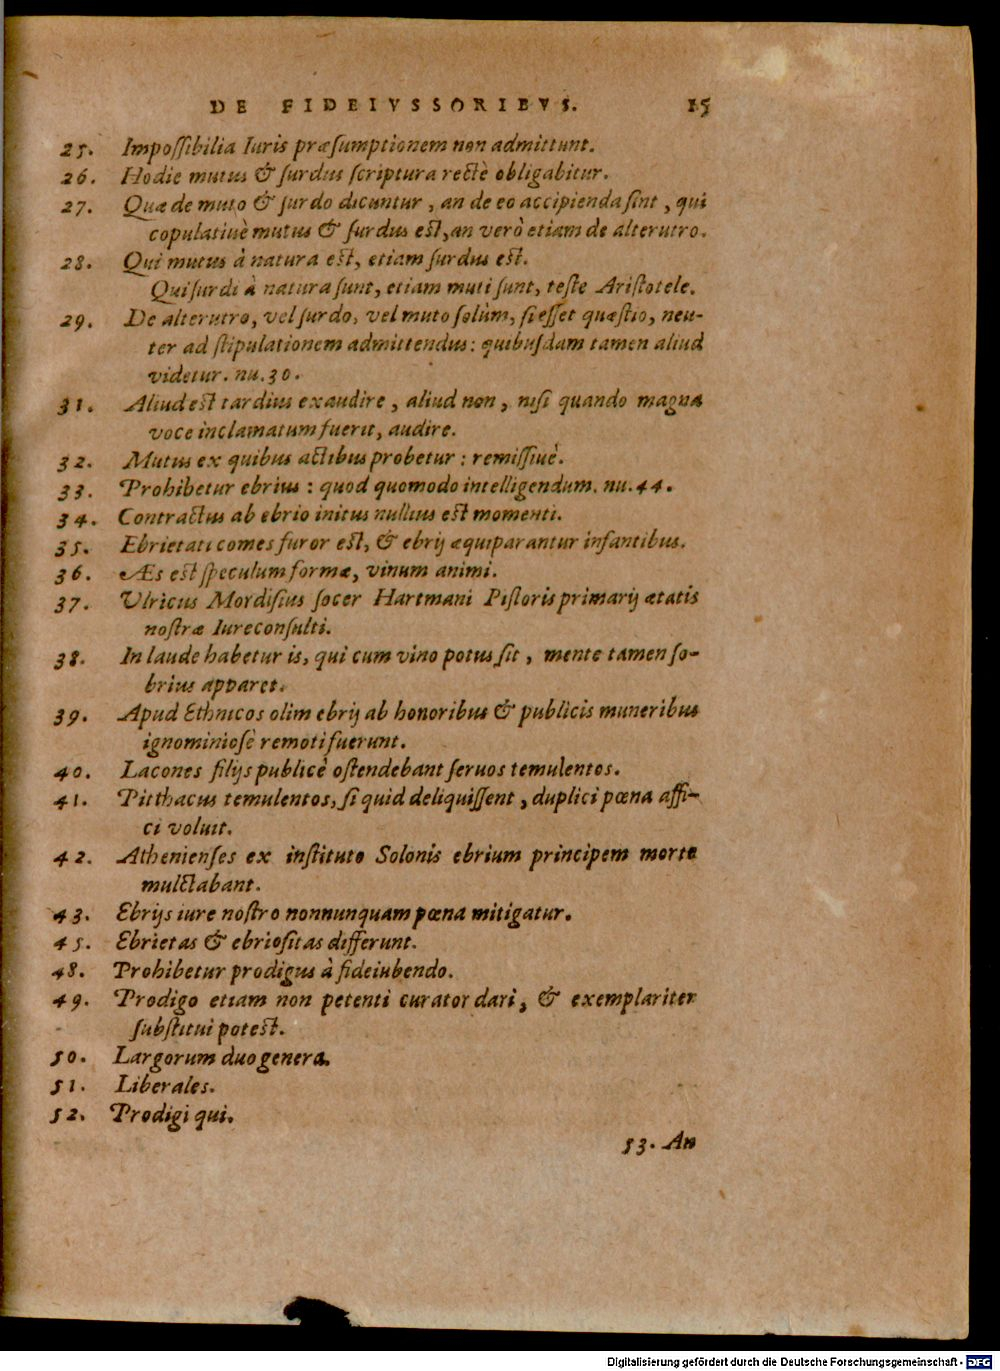 DE FIDEIVSSORIBVS. 15
25. Impoſſibilia Iuris præſumptionem non admittunt.
26. Hodie mutus & ſurdus ſcriptura rectè obligabitur.
27. Quæ de muto & ſurdo dicuntur, an de eo accipienda ſint, qui
copulatiuè mutus & ſurdus eſt, an verò etiam de alterutro.
28. Qui mutus à natura eſt, etiam ſurdus eſt.
Qui ſurdi à natura ſunt, etiam muti ſunt, teſte Ariſtotele.
29. De alterutro, vel ſurdo, vel muto ſolùm, ſi eſſet quæſtio, neu-
ter ad ſtipulationem admittendus: quibuſdam tamen aliud
videtur. nu. 30.
31. Aliud eſt tardius exaudire, aliud non, niſi quando magna
voce inclamatum fuerit, audire.
32. Mutus ex quibus actibus probetur: remiſſiuè.
33. Prohibetur ebrius: quod quomodo intelligendum. nu. 44.
34. Contractus ab ebrio initus nullius eſt momenti.
35. Ebrietati comes furor eſt, & ebrij æquiparantur infantibus.
36. Æs eſt ſpeculum formæ, vinum animi.
37. Vlricus Mordiſius ſocer Hartmani Piſtoris primarij ætatis
noſtræ Iureconſulti.
38. In laude habetur is, qui cum vino potus ſit, mente tamen ſo-
brius apparet.
39. Apud Ethnicos olim ebrij ab honoribus & publicis muneribus
ignominioſè remoti fuerunt.
40. Lacones filijs publicè oſtendebant ſeruos temulentos.
41. Pitthacus temulentos, ſi quid deliquiſſent, duplici pœna affi-
ci voluit.
42. Athenienſes ex inſtituto Solonis ebrium principem morte
mulctabant.
43. Ebrijs iure noſtro nonnunquam pœna mitigatur.
45. Ebrietas & ebrioſitas differunt.
48. Prohibetur prodigus à fideiubendo.
49. Prodigo etiam non petenti curator dari, & exemplariter
ſubſtitui poteſt.
50. Largorum duo genera.
51. Liberales.
52. Prodigi qui.
53. An
Digitalisierung gefördert durch die Deutsche Forschungsgemeinschaft - DFG